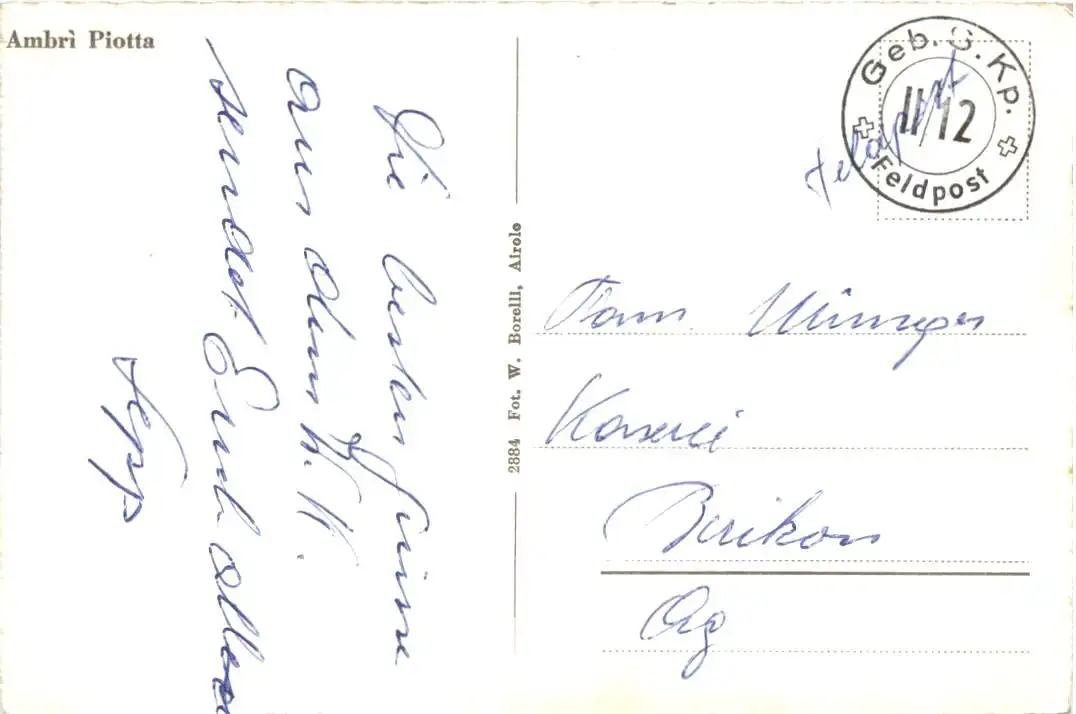 Ambrì Piotta
Die besten Grüsse
aus dem W.K.
sendet Euch allen
Sepp
2884 Fot. W. Borelli, Airolo
Geb. S. Kp.
II/12
Feldpost
Feldpost
Fam.
Käserei
Berikon
Ag